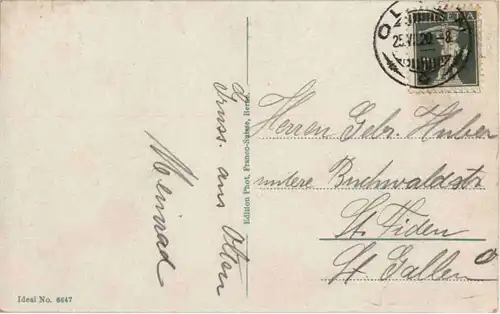 OLTEN
25.VII.20-8
HELVETIA
Gruss. aus Olten
Meinrad
Edition Phot. Franco-Suisse, Berne.
Herren Gebr. Huber
untere Buchwaldstr
St. Fiden
St. Gallen O
Ideal No. 6647